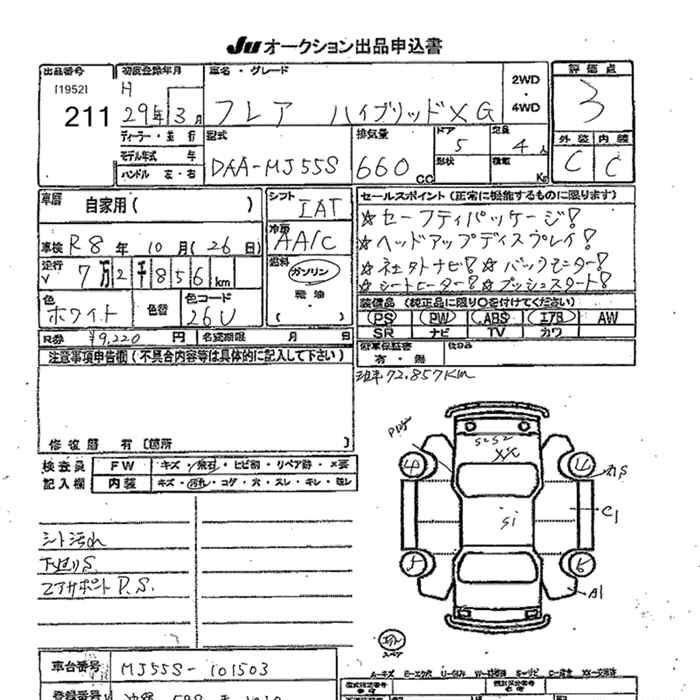 JU オークション出品申込書
出品番号
[1952]
211
初度登録年月
H
29年 3月
車名・グレード
フレア ハイブリッドXG
2WD
・
4WD
評価点
3
ディーラー・並行
モデル年式 年
ハンドル 左・右
型式
DAA-MJ55S
排気量
660 CC
ドア
5
定員
4 人
形状
積載
Kg
外装 内装
C C
車歴
自家用( )
車検 R8年 10月(26日)
走行
7万2千856km
色
ホワイト
色替
色コード
26U
シフト
IAT
冷房
AA/C
燃料
ガソリン
軽油
( )
セールスポイント(正常に機能するものに限ります)
☆セーフティパッケージ!
☆ヘッドアップディスプレイ!
☆ナビ!☆バックモニター!
☆シートヒーター!☆プッシュスタート!
装備品 (純正品に限り○を付けてください)
PS PW ABS エアB AW
SR ナビ TV カワ
R券 ¥9,220 円
名変期限 月 日
新車保証書
有・無
後日み
注意事項申告欄(不具合内容等は具体的に記入して下さい)
72,857Km
修復歴 有〔箇所 〕
検査員
記入欄
FW キズ・飛石・ヒビ割・リペア跡・×要
内装 キズ・汚れ・コゲ・穴・スレ・キレ・

S2S2
XX
4 4
Si
C1
5 5
A1
シート汚れ
下廻りS
コアサポートP.S.
スペア
車台番号 MJ55S-101503
登録番号
A-キズ E-エクボ U-凹み W-補修跡 S-サビ C-腐食 XX-交換済